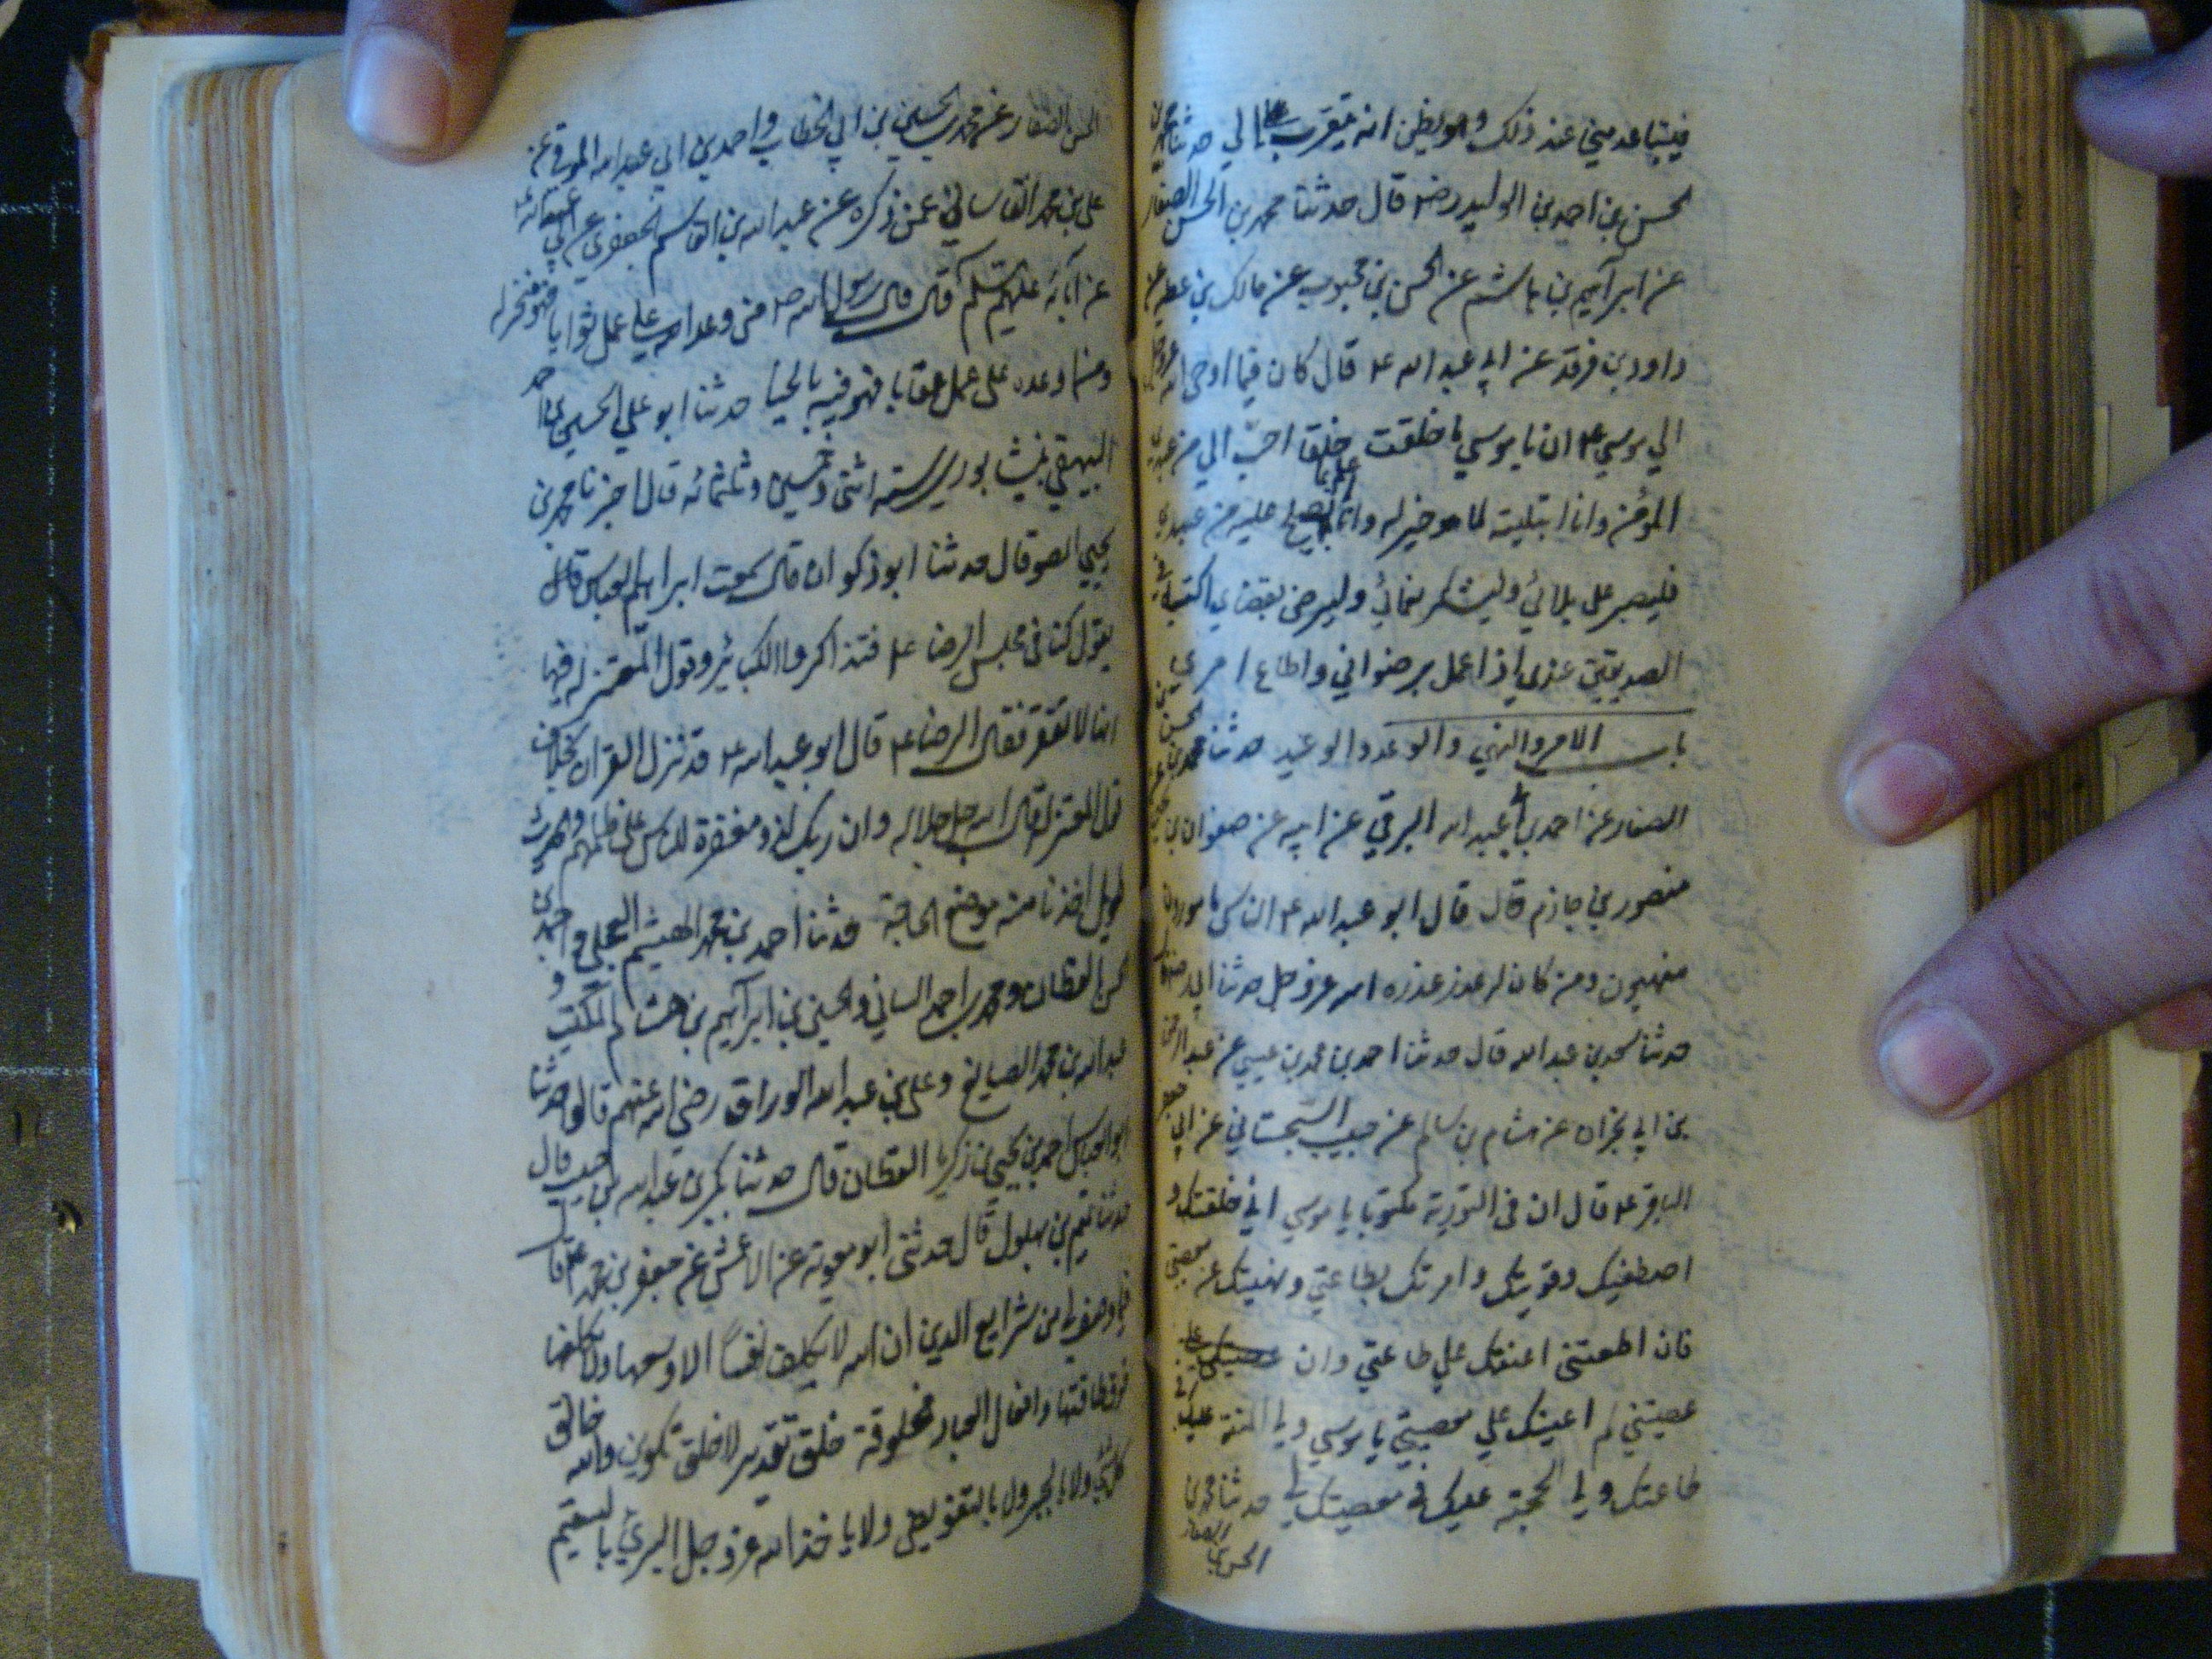 فيتباعد مني عند ذلك وهو يظن انه يتقرب الي حدثنا محمد بن
الحسن بن احمد بن الوليد رضه قال حدثنا محمد بن الحسن الصفار
عن ابراهيم بن هاشم عن الحسن بن محبوب عن مالك بن عطيه عن
داود بن فرقد عن ابي عبد الله ع قال كان فيما اوحى الله عزوجل
الي موسي ع ان يا موسي ما خلقت خلقا احب الي من عبدي
المؤمن وانا ابتليته لما هو خير له وانا اعلم بما يصلح عليه من عبدي
فليصبر علي بلائي وليشكر نعمائي وليرض بقضاي اكتبه في
الصديقين عندي اذا عمل برضواني واطاع امري
باب الامر والنهي والوعد والوعيد حدثنا محمد بن الحسن
الصفار عن احمد بن ابي عبد الله البرقي عن ابيه عن صفوان بن
منصور بن حازم قال قال ابو عبد الله ع الناس مامورون
منهيون ومن كان له عذر عذره الله عزوجل حدثنا ابي رضه قال
حدثنا سعد بن عبد الله قال حدثنا احمد بن محمد بن عيسي عن عبد الرحمن
بن ابي نجران عن هشام بن سالم عن حبيب السجستاني عن ابي جعفر
الباقر ع قال ان في التورية مكتوبا يا موسي اني خلقتك و
اصطفيتك وقويتك وامرتك بطاعتي ونهيتك عن معصيتي
فان اطعتني اعنتك علي طاعتي وان
عصيتني لم اعينك علي معصيتي يا موسي ولي المنة عليك في
طاعتك لي ولي الحجة عليك في معصيتك لي حدثنا محمد بن
الحسن بن
الحسن الصفار عن محمد بن الحسين بن ابي الخطاب واحمد بن ابي عبد الله البرقي عن
علي بن محمد القاساني عمن ذكره عن عبد الله بن القاسم الجعفري عن ابي عبد الله ع
عن آبائه عليهم السلم قال قال رسول الله ص من وعده الله علي عمل ثوابا فهو منجز له
ومن اوعده على عمل عقابا فهو فيه بالخيا حدثنا ابو علي الحسين بن احمد
البيهقي بنيشابور سنة اثنى وخمسين وثلثمائه قال اخبرنا محمد بن
يحيي الصو قال حدثنا ابو ذكوان قال سمعت ابراهيم العباس قال
يقول كنا في مجلس الرضا ع فتذاكروا الكبائر وقول المعتزله فيها
انها لا تغفر فقال الرضا ع قال ابو عبد الله ع قد نزل القران بخلاف
قول المعتزله قال الله جل جلاله وان ربك لذو مغفرة للناس علي ظلمهم والحديث
طويل اخذنا منه موضع الحاجة حدثنا احمد بن محمد الهيثم العجلي واحمد بن
الحسن القطان ومحمد بن احمد السناني والحسين بن ابراهيم بن هشام المكتب و
عبد الله بن محمد الصايغ وعلي بن عبد الله الوراق رضي الله عنهم قالوا حدثنا
ابو العباس احمد بن يحيي بن زكريا القطان قال حدثنا بكر بن عبد الله بن حبيب قال
حدثنا تميم بن بهلول قال حدثني ابو معوية عن الاعمش عن جعفر بن محمد ع قال
فيما وصف لي من شرايع الدين ان الله لا يكلف نفسا الا وسعها ولا يكلفها
فوق طاقتها وافعال العباد مخلوقة خلق تقدير لا خلق تكوين والله خالق
كل شيء ولا بالجبر ولا بالتفويض ولا ياخذ الله عزوجل البريء بالسقيم